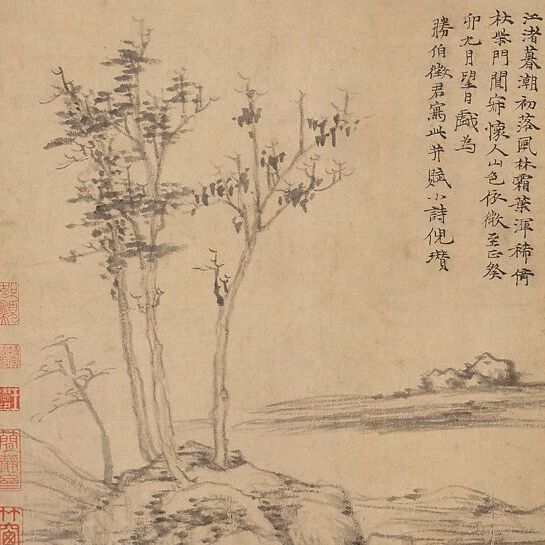 江渚暮潮初落風林霜葉渾稀倚
杖柴門闃寂懷人山色依微至正癸
卯九月望日戲為
勝伯徵君寫此并賦小詩倪瓚